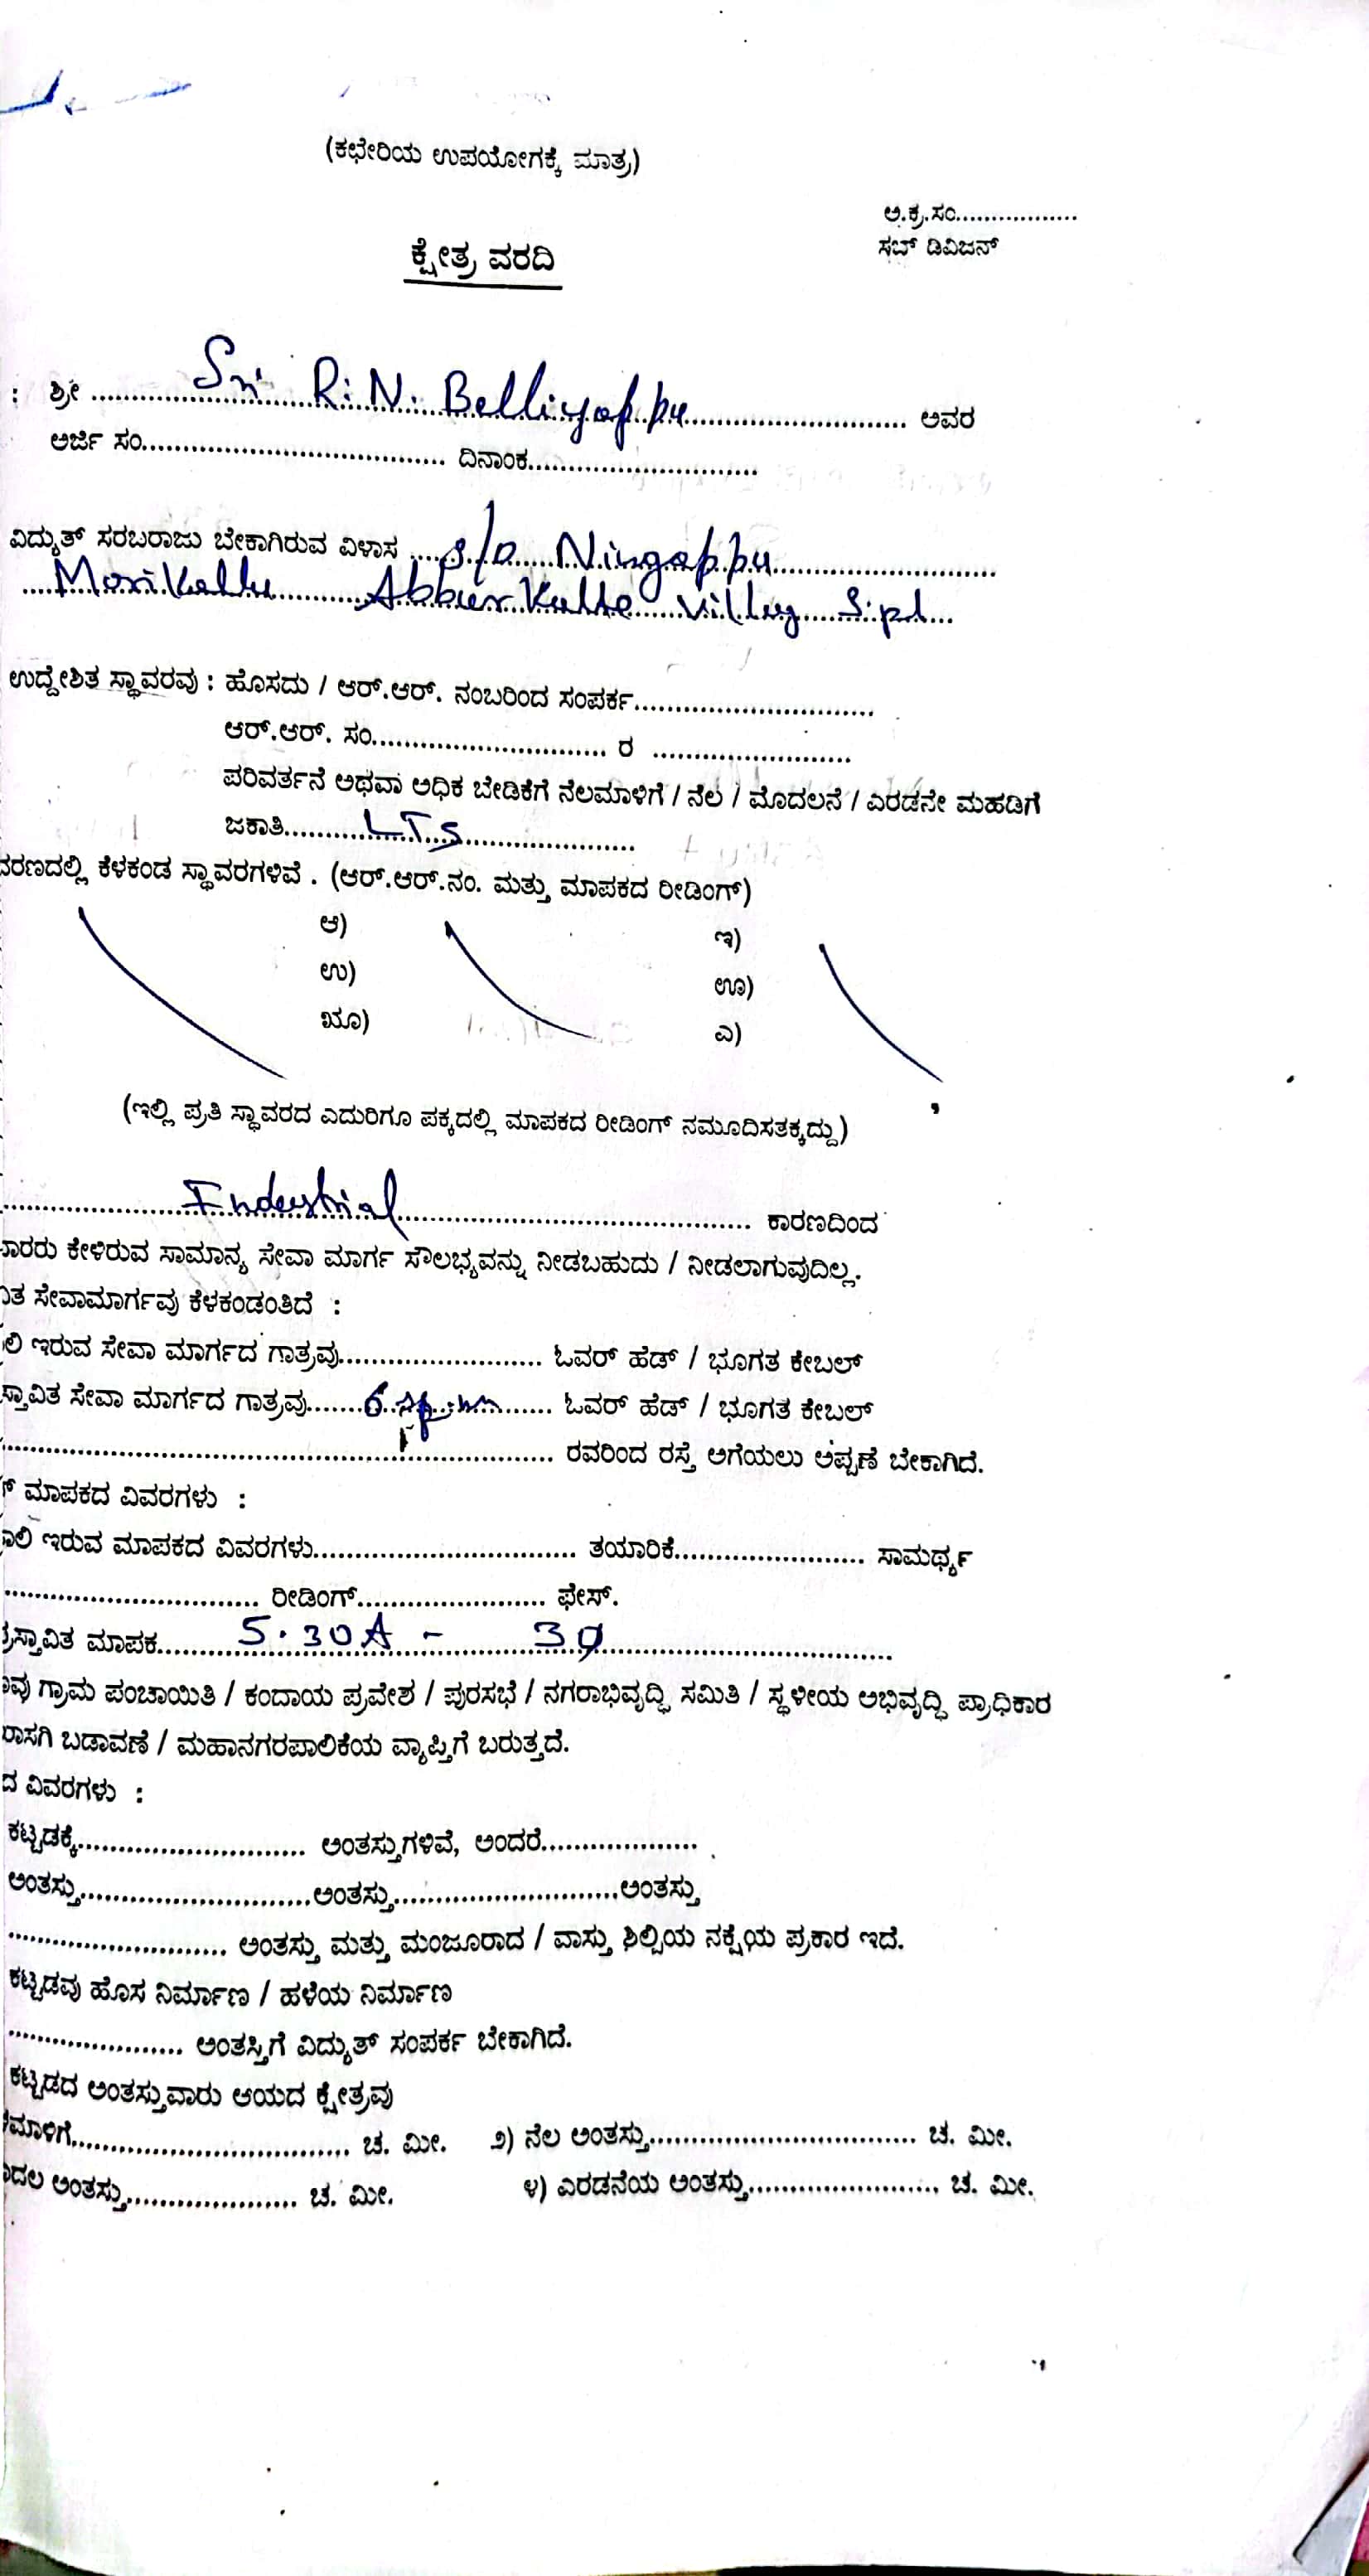 (ಕಛೇರಿಯ ಉಪಯೋಗಕ್ಕೆ ಮಾತ್ರ)
ಅ.ಕ್ರ.ಸಂ.................
ಸಬ್ ಡಿವಿಜನ್
ಕ್ಷೇತ್ರ ವರದಿ
: ಶ್ರೀ ........ Sri R. N. Belliyappa ........ ಅವರ
ಅರ್ಜಿ ಸಂ........................ ದಿನಾಂಕ........................
ವಿದ್ಯುತ್ ಸರಬರಾಜು ಬೇಕಾಗಿರುವ ವಿಳಾಸ .... s/o Ningappa ........
.... Morikallu Abburkatte Villag S.pt ...
ಉದ್ದೇಶಿತ ಸ್ಥಾವರವು : ಹೊಸದು / ಆರ್.ಆರ್. ನಂಬರಿಂದ ಸಂಪರ್ಕ........................
ಆರ್.ಆರ್. ಸಂ........................ ರ ........................
ಪರಿವರ್ತನೆ ಅಥವಾ ಅಧಿಕ ಬೇಡಿಕೆಗೆ ನೆಲಮಾಳಿಗೆ / ನೆಲ / ಮೊದಲನೆ / ಎರಡನೇ ಮಹಡಿಗೆ
ಜಕಾತಿ.......... LT5 ..............
ವರಣದಲ್ಲಿ ಕೆಳಕಂಡ ಸ್ಥಾವರಗಳಿವೆ . (ಆರ್.ಆರ್.ನಂ. ಮತ್ತು ಮಾಪಕದ ರೀಡಿಂಗ್)
ಆ) ಇ)
ಉ) ಊ)
ಋೂ) ಎ)
(ಇಲ್ಲಿ ಪ್ರತಿ ಸ್ಥಾವರದ ಎದುರಿಗೂ ಪಕ್ಕದಲ್ಲಿ ಮಾಪಕದ ರೀಡಿಂಗ್ ನಮೂದಿಸತಕ್ಕದ್ದು)
................ Industrial ................ ಕಾರಣದಿಂದ
ದಾರರು ಕೇಳಿರುವ ಸಾಮಾನ್ಯ ಸೇವಾ ಮಾರ್ಗ ಸೌಲಭ್ಯವನ್ನು ನೀಡಬಹುದು / ನೀಡಲಾಗುವುದಿಲ್ಲ.
ಿತ ಸೇವಾಮಾರ್ಗವು ಕೆಳಕಂಡಂತಿದೆ :
ಲಿ ಇರುವ ಸೇವಾ ಮಾರ್ಗದ ಗಾತ್ರವು........................ ಓವರ್ ಹೆಡ್ / ಭೂಗತ ಕೇಬಲ್
ಸ್ತಾವಿತ ಸೇವಾ ಮಾರ್ಗದ ಗಾತ್ರವು....... 6 ........ ಓವರ್ ಹೆಡ್ / ಭೂಗತ ಕೇಬಲ್
................................ ರವರಿಂದ ರಸ್ತೆ ಅಗೆಯಲು ಅಪ್ಪಣೆ ಬೇಕಾಗಿದೆ.
ಕ್ ಮಾಪಕದ ವಿವರಗಳು :
ಾಲಿ ಇರುವ ಮಾಪಕದ ವಿವರಗಳು........................ ತಯಾರಿಕೆ........................ ಸಾಮರ್ಥ್ಯ
........................ ರೀಡಿಂಗ್........................ ಫೇಸ್.
ಪ್ರಸ್ತಾವಿತ ಮಾಪಕ........ 5.30A - 3Ø ................
ವು ಗ್ರಾಮ ಪಂಚಾಯಿತಿ / ಕಂದಾಯ ಪ್ರವೇಶ / ಪುರಸಭೆ / ನಗರಾಭಿವೃದ್ಧಿ ಸಮಿತಿ / ಸ್ಥಳೀಯ ಅಭಿವೃದ್ಧಿ ಪ್ರಾಧಿಕಾರ
ಖಾಸಗಿ ಬಡಾವಣೆ / ಮಹಾನಗರಪಾಲಿಕೆಯ ವ್ಯಾಪ್ತಿಗೆ ಬರುತ್ತದೆ.
ದ ವಿವರಗಳು :
ಕಟ್ಟಡಕ್ಕೆ........................ ಅಂತಸ್ತುಗಳಿವೆ, ಅಂದರೆ...................
ಅಂತಸ್ತು........................ಅಂತಸ್ತು........................ಅಂತಸ್ತು
........................ ಅಂತಸ್ತು ಮತ್ತು ಮಂಜೂರಾದ / ವಾಸ್ತು ಶಿಲ್ಪಿಯ ನಕ್ಷೆಯ ಪ್ರಕಾರ ಇದೆ.
ಕಟ್ಟಡವು ಹೊಸ ನಿರ್ಮಾಣ / ಹಳೆಯ ನಿರ್ಮಾಣ
..................... ಅಂತಸ್ತಿಗೆ ವಿದ್ಯುತ್ ಸಂಪರ್ಕ ಬೇಕಾಗಿದೆ.
ಕಟ್ಟಡದ ಅಂತಸ್ತುವಾರು ಆಯದ ಕ್ಷೇತ್ರವು
ಮಾಳಿಗೆ........................ ಚ. ಮೀ. ೨) ನೆಲ ಅಂತಸ್ತು........................ ಚ. ಮೀ.
ದಲ ಅಂತಸ್ತು..................... ಚ. ಮೀ. ೪) ಎರಡನೆಯ ಅಂತಸ್ತು....................... ಚ. ಮೀ.